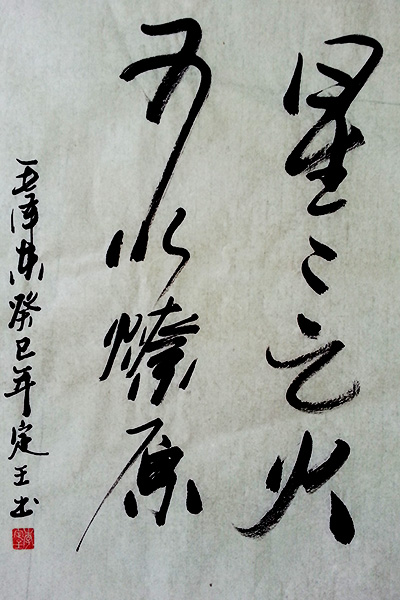 星星之火
可以燎原
毛泽东癸巳年定王书